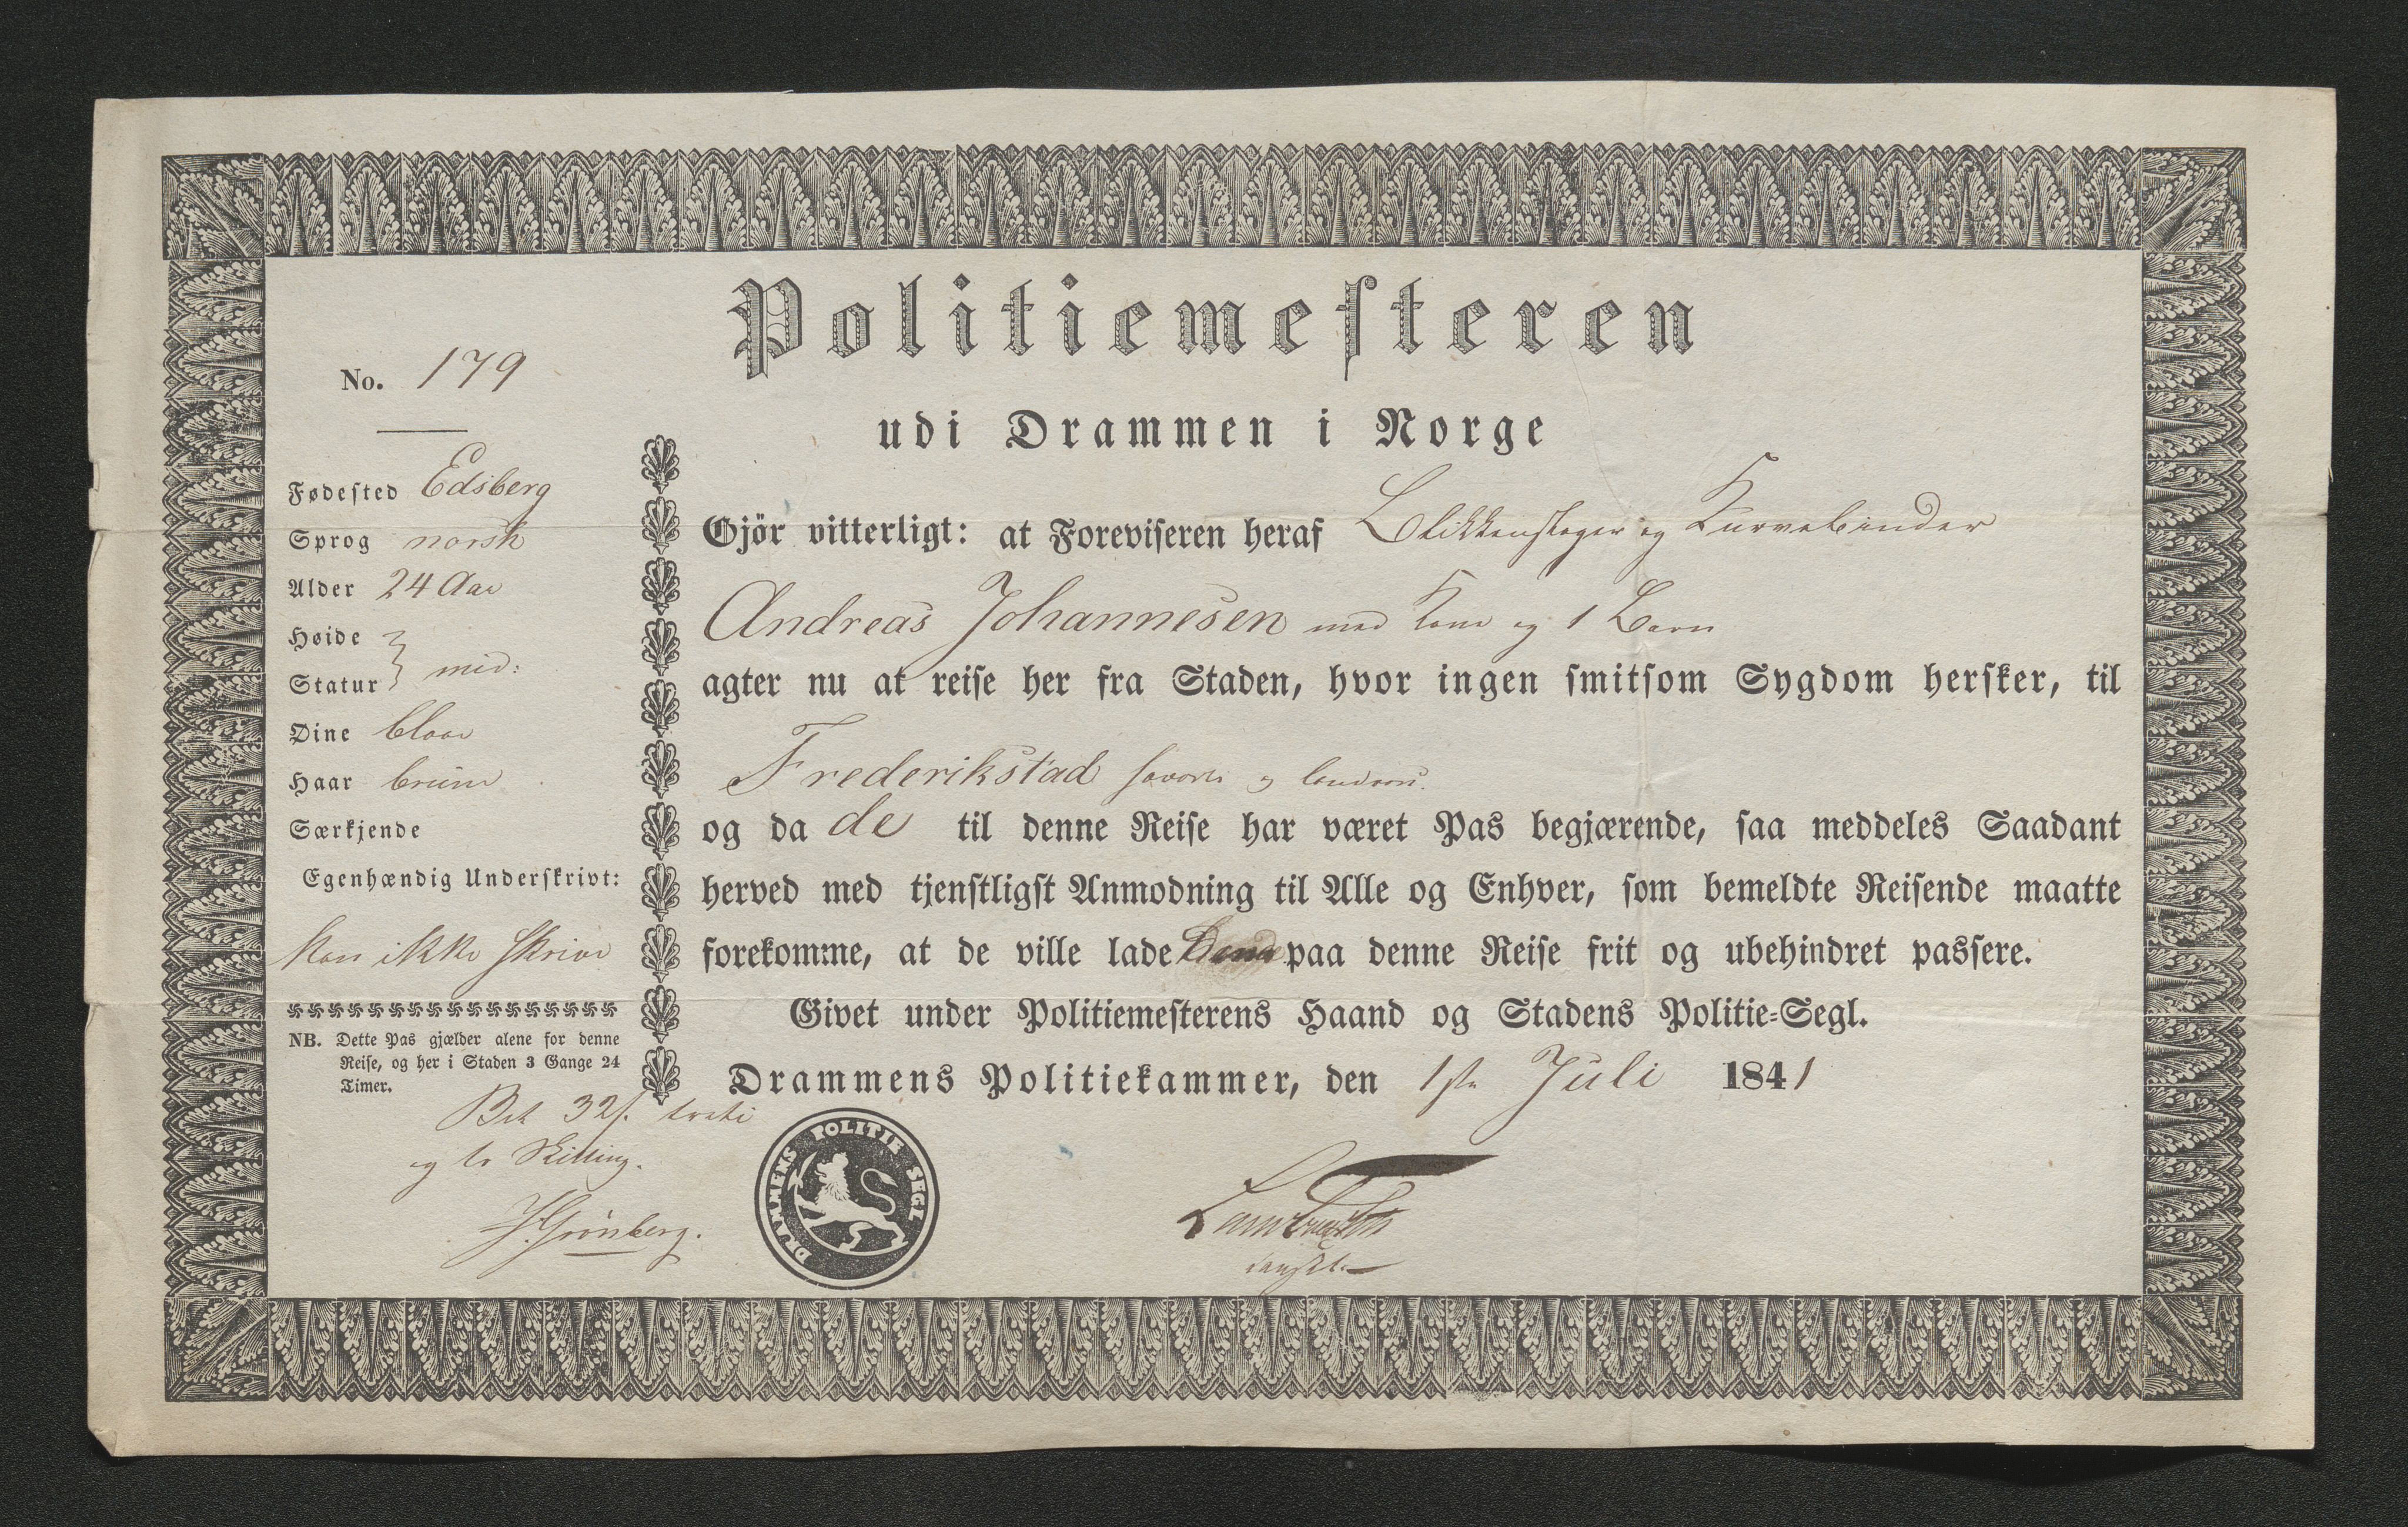 Politiemesteren
udi Drammen i Norge
No. 179
Fødested Edsberg
Sprog norsk
Alder 24 Aar
Høide
Statur mid:
Øine blaae
Haar bruun
Særkjende
Egenhændig Underskrivt:
kan ikke skrive
NB. Dette Pas gjælder alene for denne
Reise, og her i Staden 3 Gange 24
Timer.
Bet 32 s. treti
og to Skilling.
Grönberg.
Gjör vitterligt: at Foreviseren heraf Blikkenslager og Kurvebinder
Andreas Johannesen med Kone og 1 Barn
agter nu at reise her fra Staden, hvor ingen smitsom Sygdom hersker, til
Frederikstad
og da de til denne Reise har været Pas begjærende, saa meddeles Saadant
herved med tjenstligst Anmodning til Alle og Enhver, som bemeldte Reisende maatte
forekomme, at de ville lade Dem paa denne Reise frit og ubehindret passere.
Givet under Politiemesterens Haand og Stadens Politie-Segl.
Drammens Politiekammer, den 1ste Juli 1841
DRAMMENS POLITIE SEGL